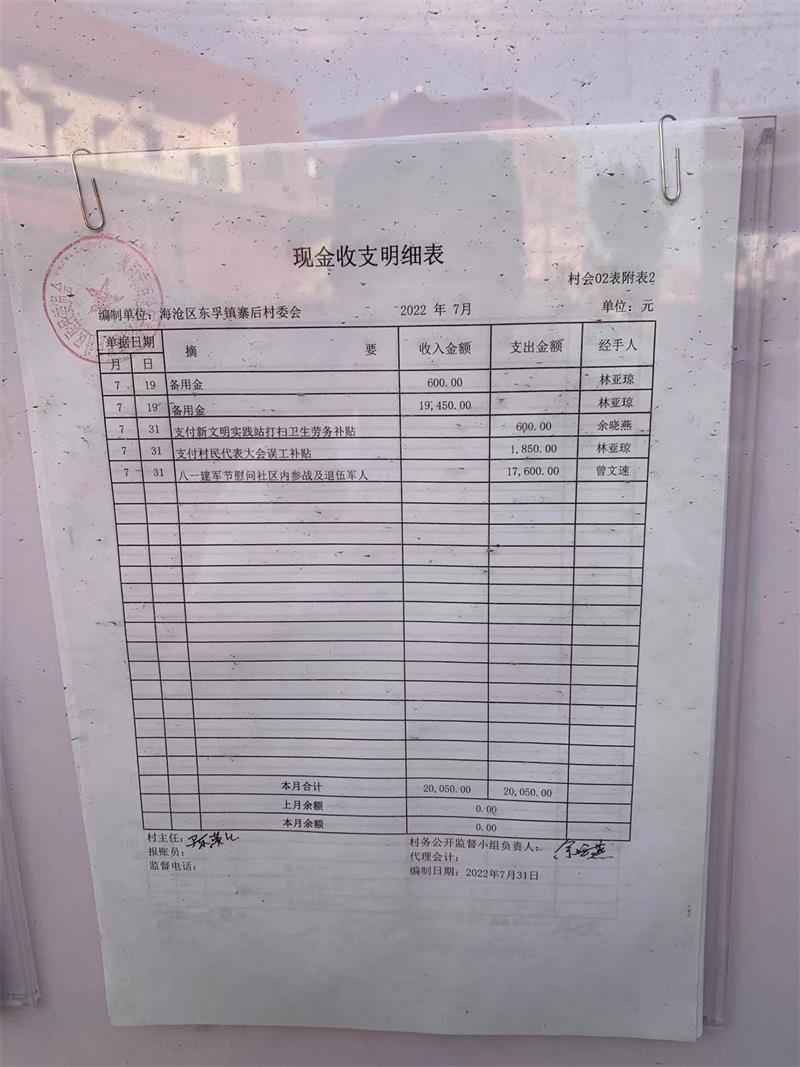 现金收支明细表
村会02表附表2
编制单位：海沧区东孚镇寨后村委会 2022 年 7月 单位：元
单据日期 摘 要 收入金额 支出金额 经手人
月 日
7 19 备用金 600.00 林亚琼
7 19 备用金 19,450.00 林亚琼
7 31 支付新文明实践站打扫卫生劳务补贴 600.00 余晓燕
7 31 支付村民代表大会误工补贴 1,850.00 林亚琼
7 31 八一建军节慰问社区内参战及退伍军人 17,600.00 曾文速
本月合计 20,050.00 20,050.00
上月余额 0.00
本月余额 0.00
村主任： 村务公开监督小组负责人：
报账员： 代理会计：
监督电话： 编制日期：2022年7月31日